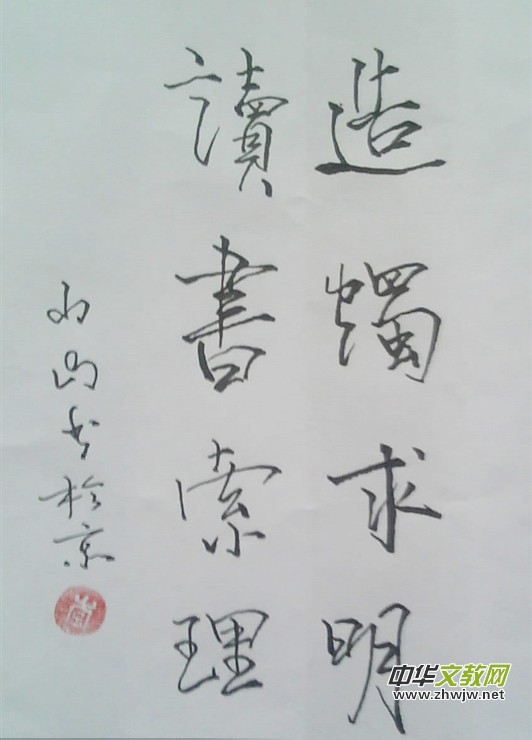 造燭求明
讀書索理
山書於京
中华文教网
www.zhwjw.net